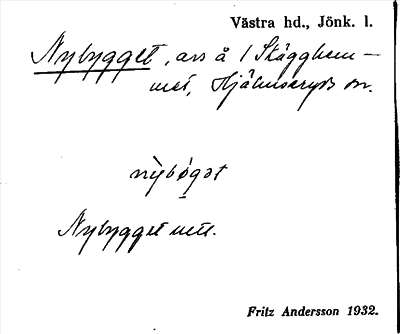 Västra hd., Jönk. l.
Nybygget, avs å 1 Skägghem-
met, Hjälmseryds sn.
nỳbø̣gət
Nybygget utt.
Fritz Andersson 1932.